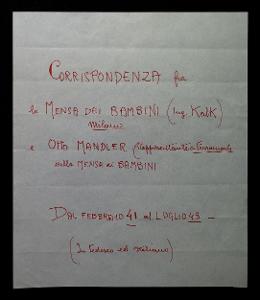 CORRISPONDENZA fra
la MENSA DEI BAMBINI (Ing. Kalk)
Milano
e OTTO MANDLER (rappresentante a Ferramonti
della MENSA dei BAMBINI
DAL FEBBRAIO 41 al LUGLIO 43 -
(In tedesco ed italiano)